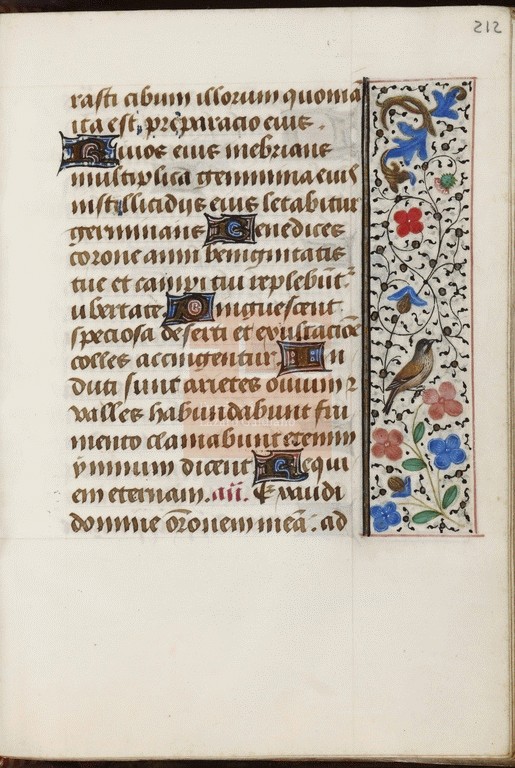 212
rasti cibum illorum quonia
ita est preparacio eius.
Riuos eius inebrians
multiplica genimina eius
in stillicidijs eius letabitur
germinans Benedices
corone anni benignitatis
tue et campi tui replebūt̄
ubertate Pinguescent
speciosa deserti et exultacioē
colles accingentur In
duti sunt arietes ouium ⁊
valles habundabunt fru
mento clamabunt etenim
ymnum dicent Requi
em eternam. añ. Exaudi
domine ōronem meā. ad